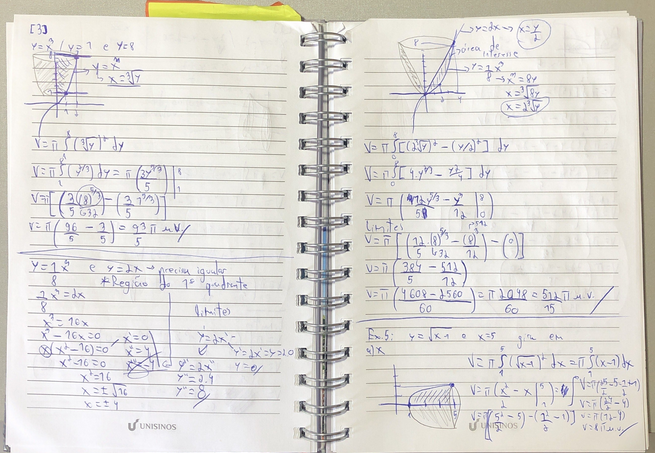 [3]
y=x³ / y=1 e y=8
y=x³
x=∛y
V=π∫₁⁸(∛y)² dy
V=π∫₁⁸(y^2/3)dy=π(3y^5/3/5)|₁⁸
V=π[(3/5(8)^5/3)-(3/5 1^5/3)]
V=π(96/5-3/5)=93/5π u.V
y=1/8x³ e y=2x → precisa igualar
*Região do 1º quadrante
1/8x³=2x
x³=16x
x³-16x=0
x(x²-16)=0
x²-16=0
x²=16
x=±√16
x=±4
x'=0
x''=4
x'''=-4
limites
y=2x
y'=2x'=y=2.0
y'=0
y''=2x''
y''=2.4
y''=8
UNISINOS
y=2x → x=y/2
área de interesse
y=1/8x³
x³=8y
x=∛8y
x=2∛y
V=π∫₀⁸[(2∛y)²-(y/2)²]dy
V=π∫₀⁸[4y^2/3-y²/4]dy
V=π(12y^5/3/5-y³/12|₀⁸)
limites
V=π[(12/5.8^5/3-(8)³/12)-(0)]
V=π(384/5-512/12)
V=π(4608-2560/60)=π2048/60=512/15π u.V
Ex.5: y=√x-1 e x=5 gira em
eixo x
V=π∫₁⁵(√x-1)²dx=π∫₁⁵(x-1)dx
V=π(x²/2-x|₁⁵)=
V=π[(5²/2-5)-(1²/2-1)]
V=π(25/2-5-1/2+1)
V=π(24/2-4)
V=π(12-4)
V=8π u.V
UNISINOS